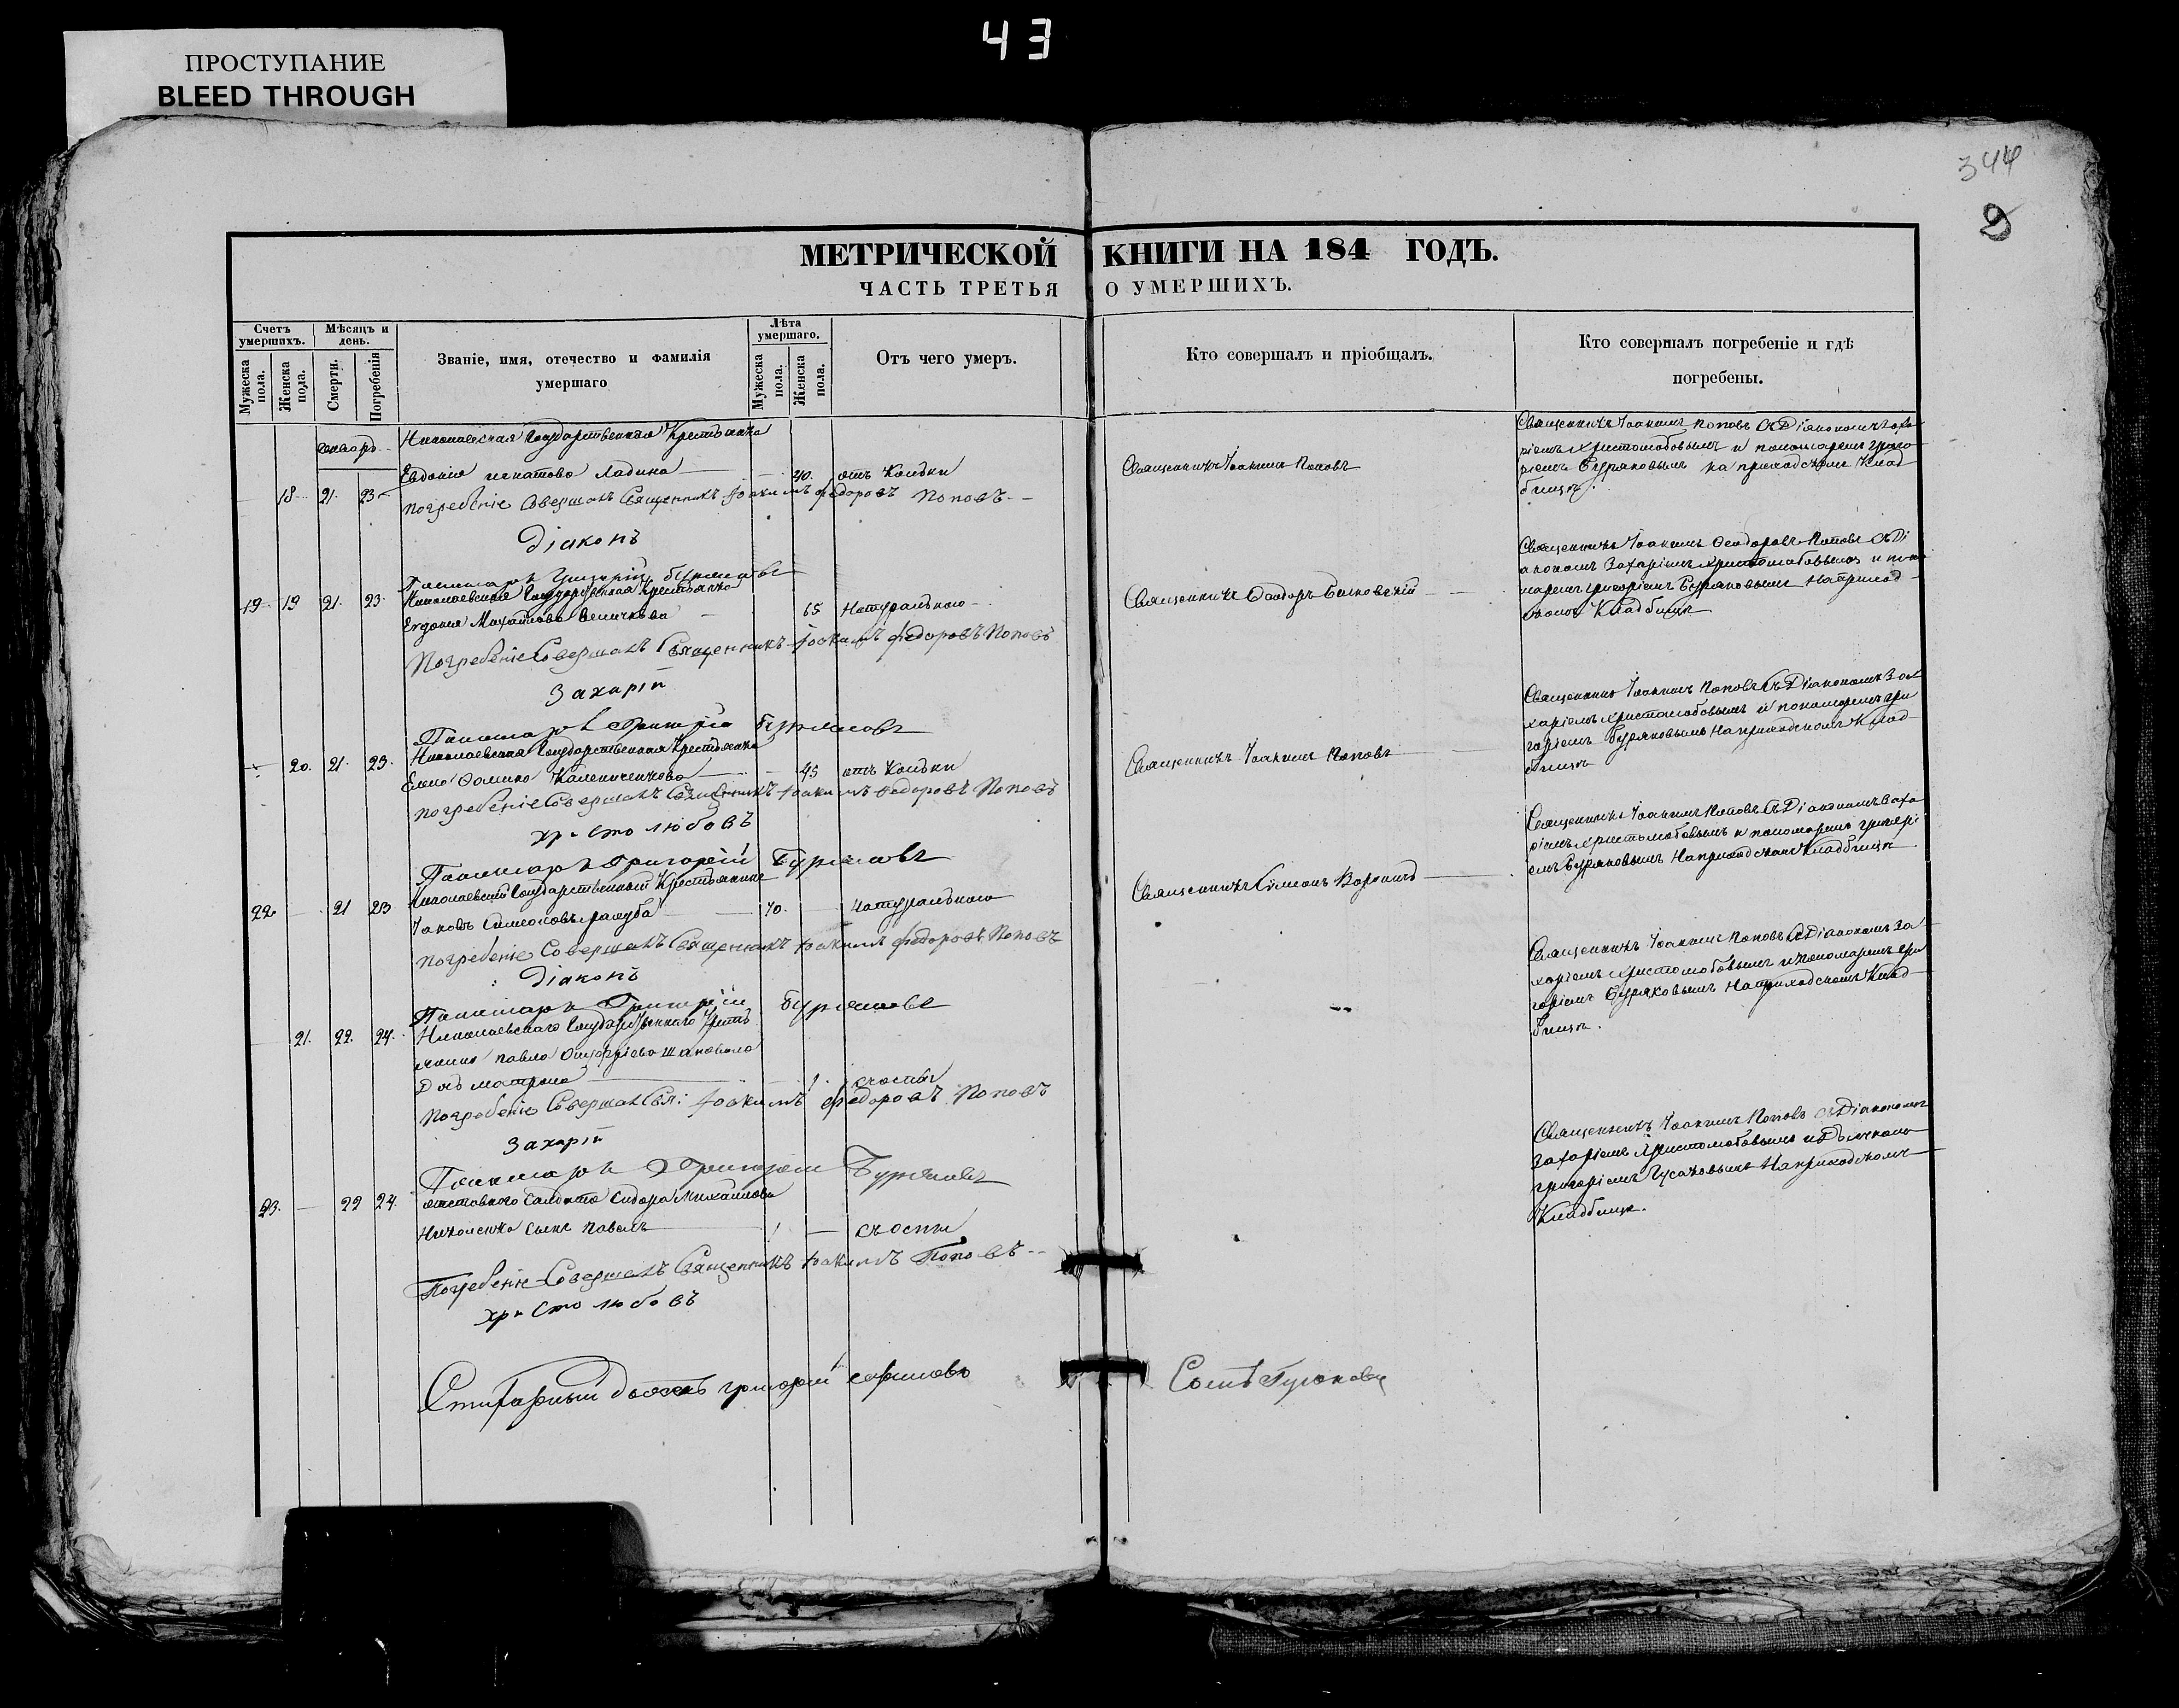 43
ПРОСТУПАНИЕ
BLEED THROUGH
344
9
МЕТРИЧЕСКОЙ КНИГИ НА 184 ГОДЪ.
ЧАСТЬ ТРЕТЬЯ О УМЕРШИХЪ.
Счетъ умершихъ.
Мужеска пола.
Женска пола.
Мѣсяцъ и день.
Смерти.
Погребенія
Званіе, имя, отечество и фамилія
умершаго
Лѣта умершаго.
Мужеска пола.
Женска пола.
Отъ чего умеръ.
Кто совершалъ и пріобщалъ.
Кто совершалъ погребеніе и гдѣ
погребены.
Николаевская Государственная Крестьянка
18 21. 23 Евдокія Ладина 40. отъ
Священникъ Іоакимъ Поповъ
Священникъ Іоакимъ Поповъ съ Діакономъ Заха
ріемъ Христолюбовымъ и пономаремъ Григо
ріемъ Буряковымъ на приходскомъ Клад
бищѣ.
Погребеніе Совершалъ Священникъ Іоакимъ Федоровъ Поповъ
Діаконъ
Пономарь Григорій
19 19 21. 23. Николаевская Государственная Крестьянка
Величкова 65 Натурально
Священникъ Феодоръ
Священникъ Іоакимъ Феодоровъ Поповъ съ Ді
акономъ Захаріемъ Христолюбовымъ и поно
маремъ Григоріемъ Буряковымъ на приход
скомъ Кладбищѣ
Погребеніе Совершалъ Священникъ Іоакимъ Федоровъ Поповъ
Захарій
Пономарь Григорій Буряковъ
20. 21. 23. Николаевская Государственная Крестьянка
Калениченкова 45 отъ
Священникъ Іоакимъ Поповъ
Священникъ Іоакимъ Поповъ съ Діакономъ За
харіемъ Христолюбовымъ и пономаремъ Гри
горіемъ Буряковымъ на приходскомъ Клад
бищѣ
Погребеніе Совершалъ Священникъ Іоакимъ Федоровъ Поповъ
Христолюбовъ
Пономарь Григорій Буряковъ
22 21 23 Николаевскій Государственный Крестьянинъ
Яковъ Симеоновъ 70. натурально
Священникъ Симеонъ
Священникъ Іоакимъ Поповъ съ Діакономъ Заха
ріемъ Христолюбовымъ и пономаремъ Григорі
емъ Буряковымъ на приходскомъ Кладбищѣ
Погребеніе Совершалъ Священникъ Іоакимъ Федоровъ Поповъ
Діаконъ
Пономарь Григорій Буряковъ
21. 22. 24. Николаевскаго Государственнаго Кресть
янина Павла Шаповала
Дочь Матрона 1.
Священникъ Іоакимъ Поповъ съ Діакономъ За
харіемъ Христолюбовымъ и пономаремъ Гри
горіемъ Буряковымъ на приходскомъ Клад
бищѣ.
Погребеніе Совершалъ Свя: Іоакимъ Федоровъ Поповъ
Захарій
Пономарь Григорій Буряковъ
23. 22 24. отставнаго Солдата Сидора Михайлова
сынъ Павелъ 1
Священникъ Іоакимъ Поповъ съ Діакономъ
Захаріемъ Христолюбовымъ и Дьячкомъ
Григоріемъ Гусаковымъ на приходскомъ
Кладбищѣ.
Погребеніе Совершалъ Священникъ Іоакимъ Поповъ
Христолюбовъ